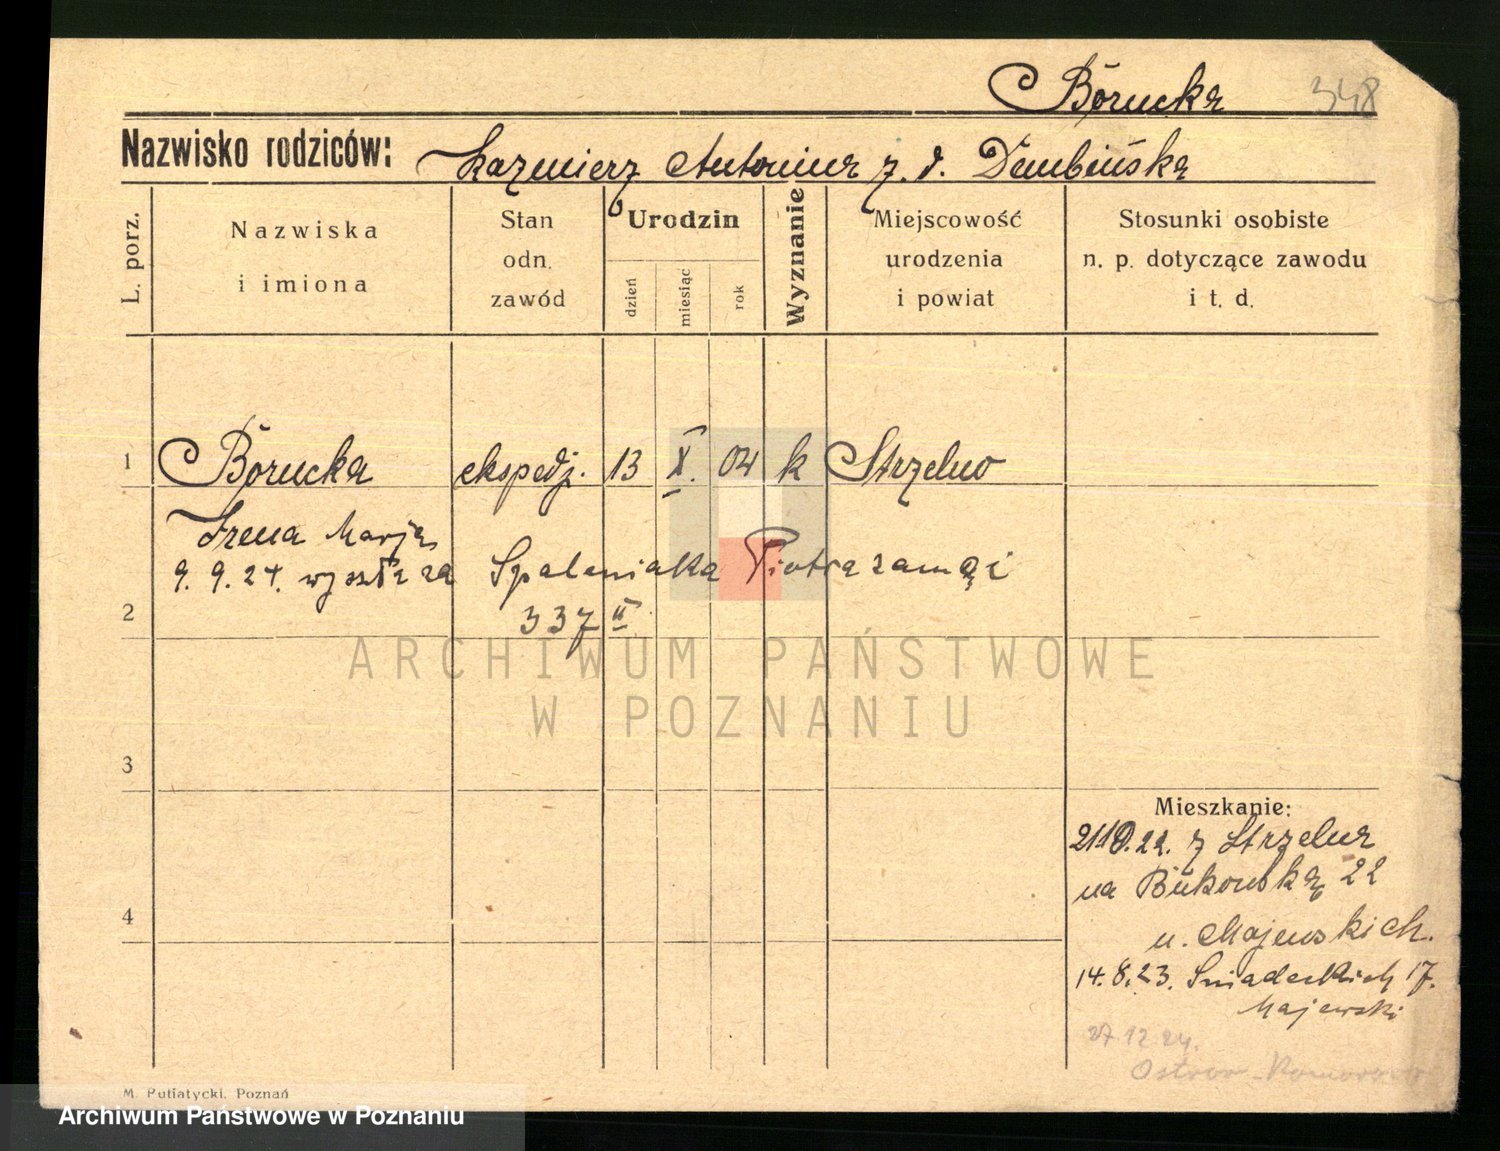 Borucka 348
Nazwisko rodziców: Kazmierz Antonina z. d. Dembińska
L. porz.
Nazwiska
i imiona
Stan
odn.
zawód
Urodzin
dzień
miesiąc
rok
Wyznanie
Miejscowość
urodzenia
i powiat
Stosunki osobiste
n. p. dotyczące zawodu
i t. d.
1 Borucka ekspedj. 13 X. 04 k Strzelno
Irena Marja
9. 9. 24. wyszła za Spaleniaka Piotra zamąż
2 337 II
ARCHIWUM PAŃSTWOWE
W POZNANIU
3
Mieszkanie:
22. z Strzelna
na Bukowską 22
4
u. Majewskich.
14. 8. 23. Śniadeckich 17.
Majewski
27 12 24.
Ostrów
M. Putiatycki, Poznań
Archiwum Państwowe w Poznaniu